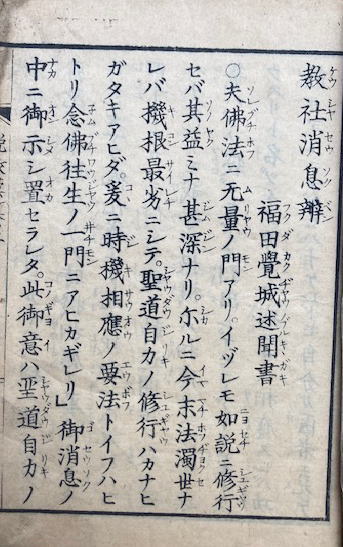 教社消息辨
福田覺城述聞書
○夫佛法ニ无量ノ門アリ。イヅレモ如說ニ修行
セバ其益ミナ甚深ナリ。尒ルニ今末法濁世ナ
レバ機根最劣ニシテ。聖道自力ノ修行ハカナヒ
ガタキアヒダ。爰ニ時機相應ノ要法トイフハヒ
トリ念佛往生ノ一門ニアヒカギレリ」御消息ノ
中ニ御示シ置セラレタ。此御意ハ聖道自力ノ